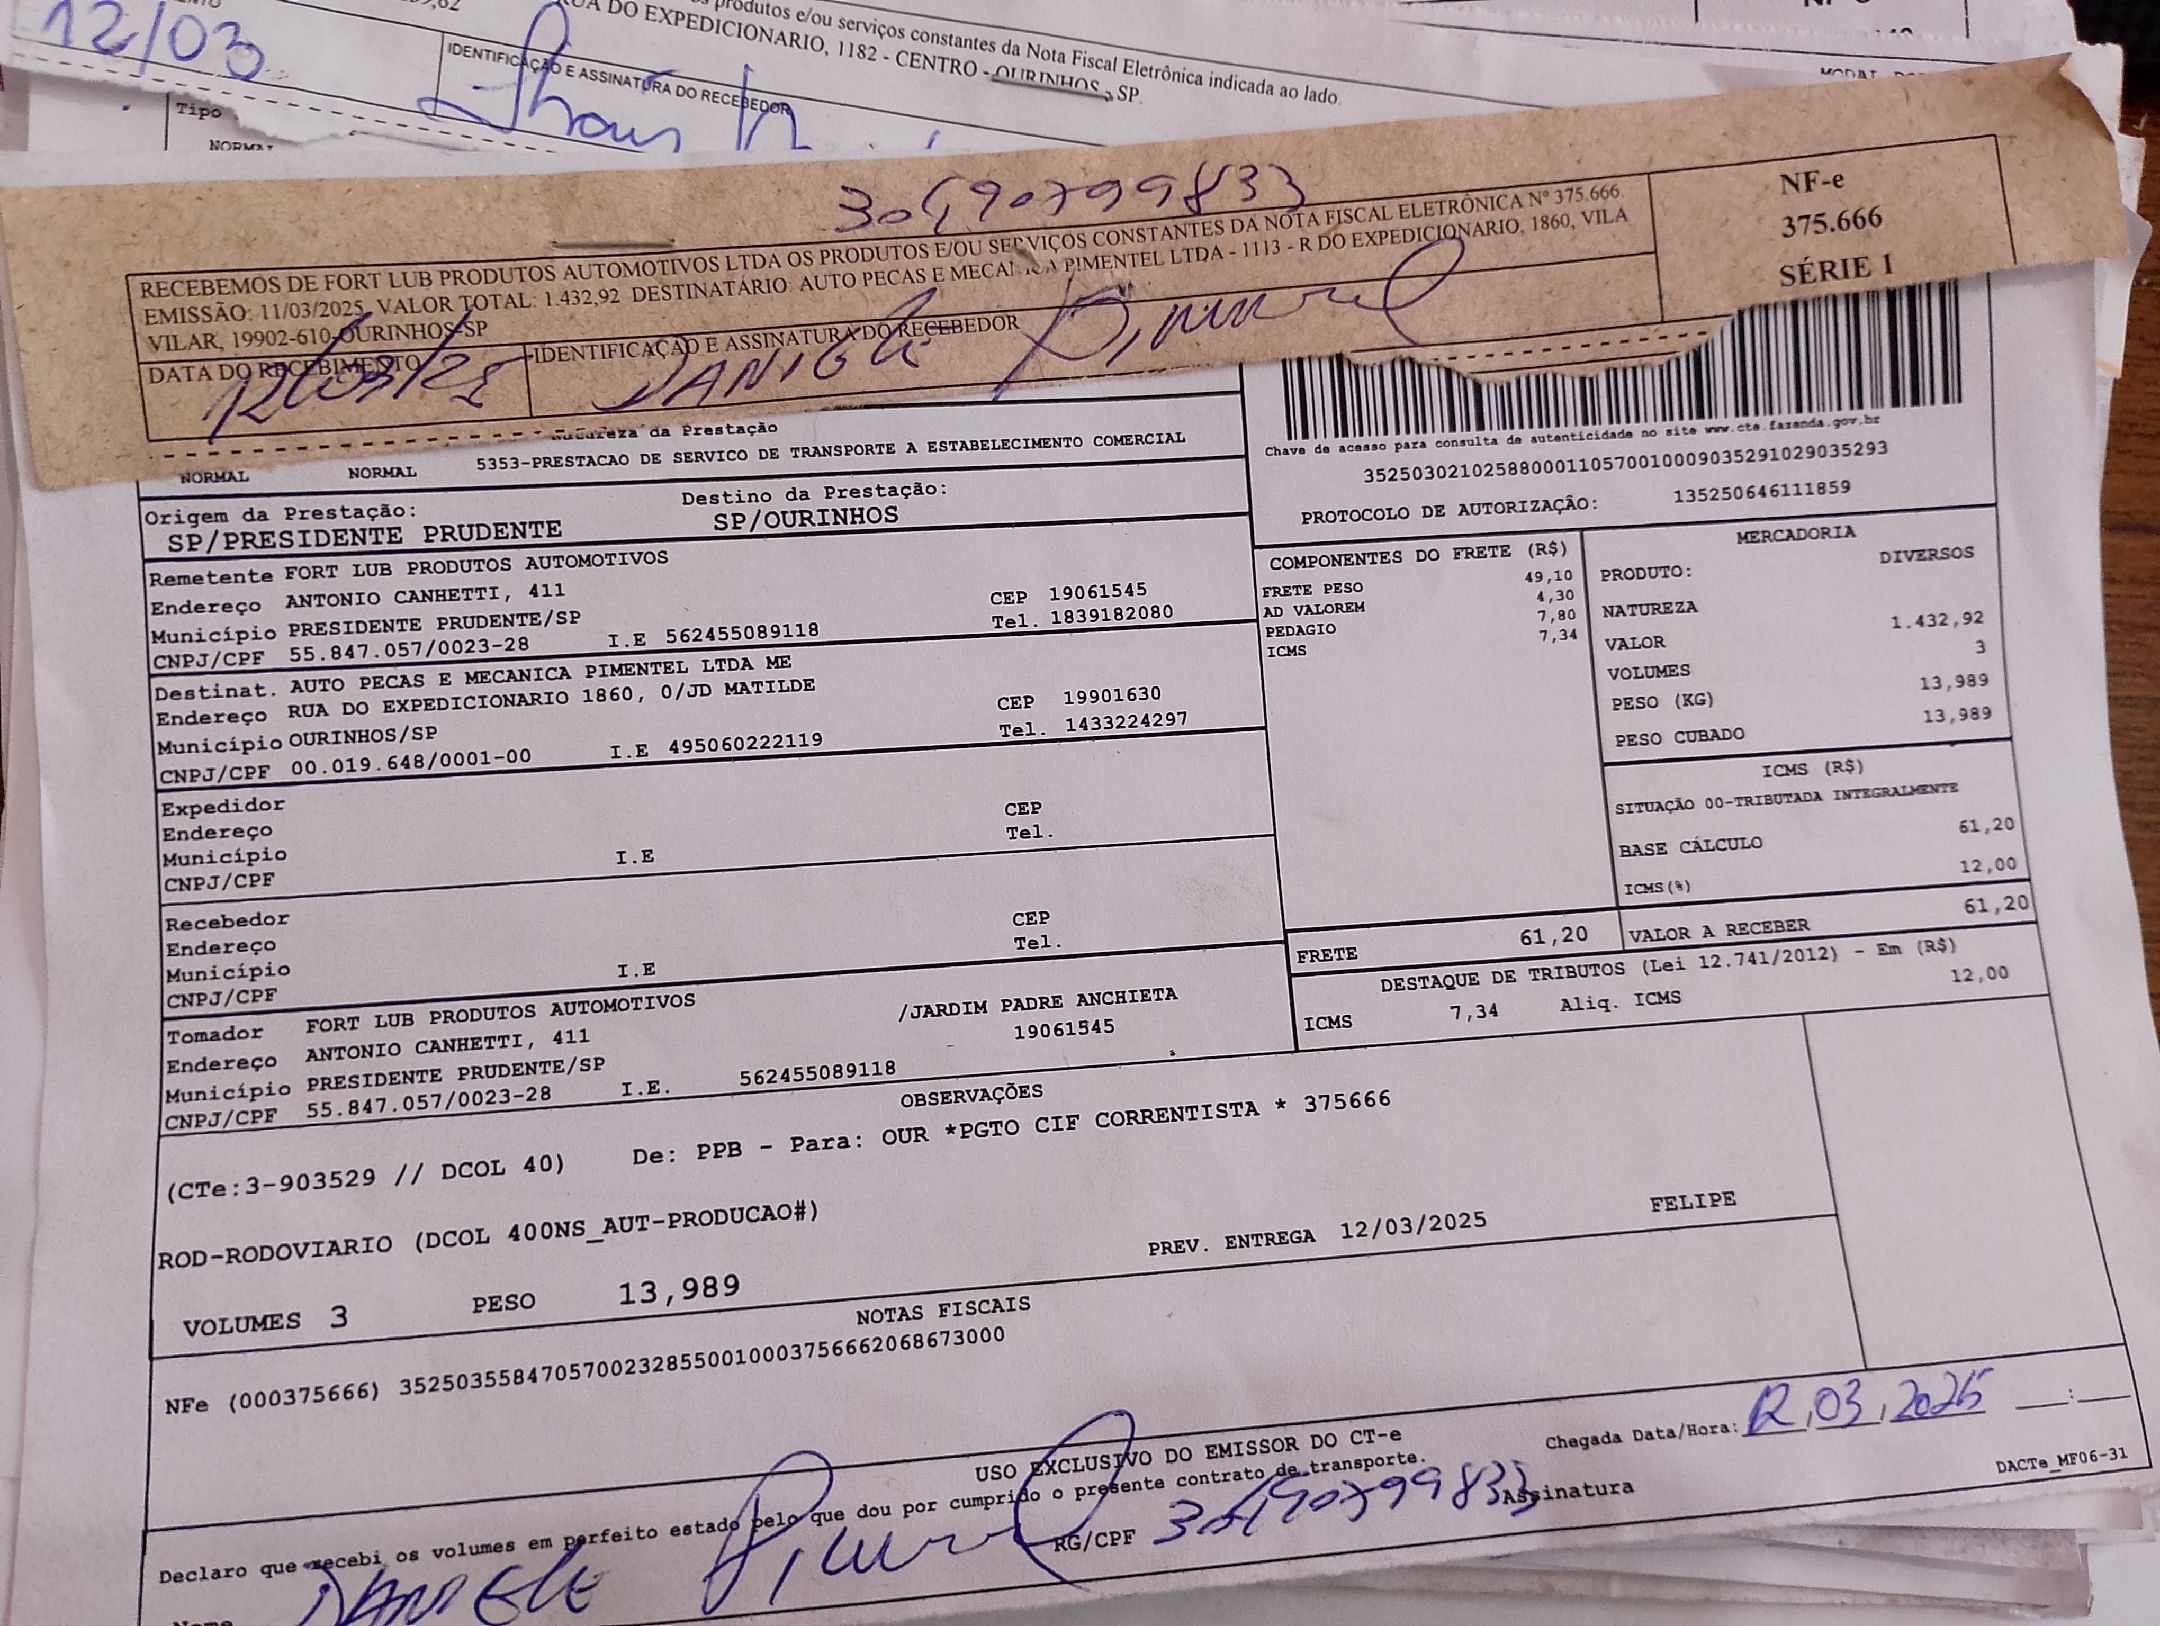 produtos e/ou serviços constantes da Nota Fiscal Eletrônica indicada ao lado.
RUA DO EXPEDICIONARIO, 1182 - CENTRO - OURINHOS - SP.
12/03
IDENTIFICAÇÃO E ASSINATURA DO RECEBEDOR
Tipo
NORMAL
RECEBEMOS DE FORT LUB PRODUTOS AUTOMOTIVOS LTDA OS PRODUTOS E/OU SERVIÇOS CONSTANTES DA NOTA FISCAL ELETRÔNICA Nº 375.666.
EMISSÃO: 11/03/2025 VALOR TOTAL: 1.432,92 DESTINATÁRIO: AUTO PECAS E MECANICA PIMENTEL LTDA - 1113 - R DO EXPEDICIONARIO, 1860, VILA
VILAR, 19902-610-OURINHOS-SP
DATA DO RECEBIMENTO
12/03/25
IDENTIFICAÇÃO E ASSINATURA DO RECEBEDOR
DANIELE Pimentel
NF-e
375.666
SÉRIE 1
Natureza da Prestação
NORMAL NORMAL 5353-PRESTACAO DE SERVICO DE TRANSPORTE A ESTABELECIMENTO COMERCIAL
Chave de acesso para consulta de autenticidade no site www.cte.fazenda.gov.br
35250302102588000110570010009035291029035293
PROTOCOLO DE AUTORIZAÇÃO: 135250646111859
Origem da Prestação: Destino da Prestação:
SP/PRESIDENTE PRUDENTE SP/OURINHOS
Remetente FORT LUB PRODUTOS AUTOMOTIVOS
Endereço ANTONIO CANHETTI, 411 CEP 19061545
Município PRESIDENTE PRUDENTE/SP Tel. 1839182080
CNPJ/CPF 55.847.057/0023-28 I.E 562455089118
Destinat. AUTO PECAS E MECANICA PIMENTEL LTDA ME
Endereço RUA DO EXPEDICIONARIO 1860, 0/JD MATILDE CEP 19901630
Município OURINHOS/SP Tel. 1433224297
CNPJ/CPF 00.019.648/0001-00 I.E 495060222119
Expedidor
Endereço CEP
Município I.E Tel.
CNPJ/CPF
Recebedor
Endereço CEP
Município I.E Tel.
CNPJ/CPF
Tomador FORT LUB PRODUTOS AUTOMOTIVOS
Endereço ANTONIO CANHETTI, 411 /JARDIM PADRE ANCHIETA
Município PRESIDENTE PRUDENTE/SP 19061545
CNPJ/CPF 55.847.057/0023-28 I.E. 562455089118
COMPONENTES DO FRETE (R$)
FRETE PESO 49,10
AD VALOREM 4,30
PEDAGIO 7,80
ICMS 7,34
MERCADORIA
PRODUTO: DIVERSOS
NATUREZA
VALOR 1.432,92
VOLUMES 3
PESO (KG) 13,989
PESO CUBADO 13,989
ICMS (R$)
SITUAÇÃO 00-TRIBUTADA INTEGRALMENTE
BASE CÁLCULO 61,20
ICMS(%) 12,00
FRETE 61,20 VALOR A RECEBER 61,20
DESTAQUE DE TRIBUTOS (Lei 12.741/2012) - Em (R$)
ICMS 7,34 Aliq. ICMS 12,00
OBSERVAÇÕES
(CTe:3-903529 // DCOL 40) De: PPB - Para: OUR *PGTO CIF CORRENTISTA * 375666
ROD-RODOVIARIO (DCOL 400NS_AUT-PRODUCAO#)
PREV. ENTREGA 12/03/2025 FELIPE
VOLUMES 3 PESO 13,989
NOTAS FISCAIS
NFe (000375666) 35250355847057002328550010003756662068673000
USO EXCLUSIVO DO EMISSOR DO CT-e
Chegada Data/Hora: 12,03,2025 __:__
Declaro que recebi os volumes em perfeito estado pelo que dou por cumprido o presente contrato de transporte.
DACTe_MF06-31
RG/CPF Assinatura
Nome DANIELE Pimentel